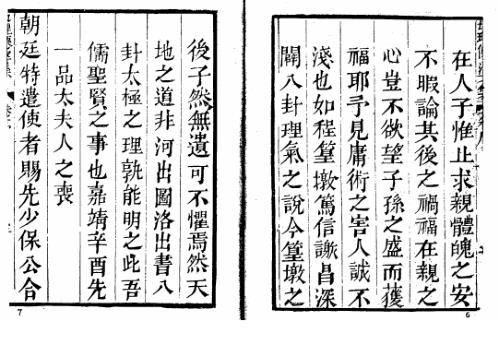 在人子惟止求親體魄之安
不暇論其後之禍福在親之
心豈不欲望子孫之盛而獲
福耶予見庸術之害人誠不
淺也如程篁墩篤信謝昌深
闢八卦理氣之說今篁墩之
6
後孑然無遺可不懼焉然天
地之道非河出圖洛出書八
卦太極之理孰能明之此吾
儒聖賢之事也嘉靖辛酉先
一品太夫人之喪
朝廷特遣使者賜先少保公合
7